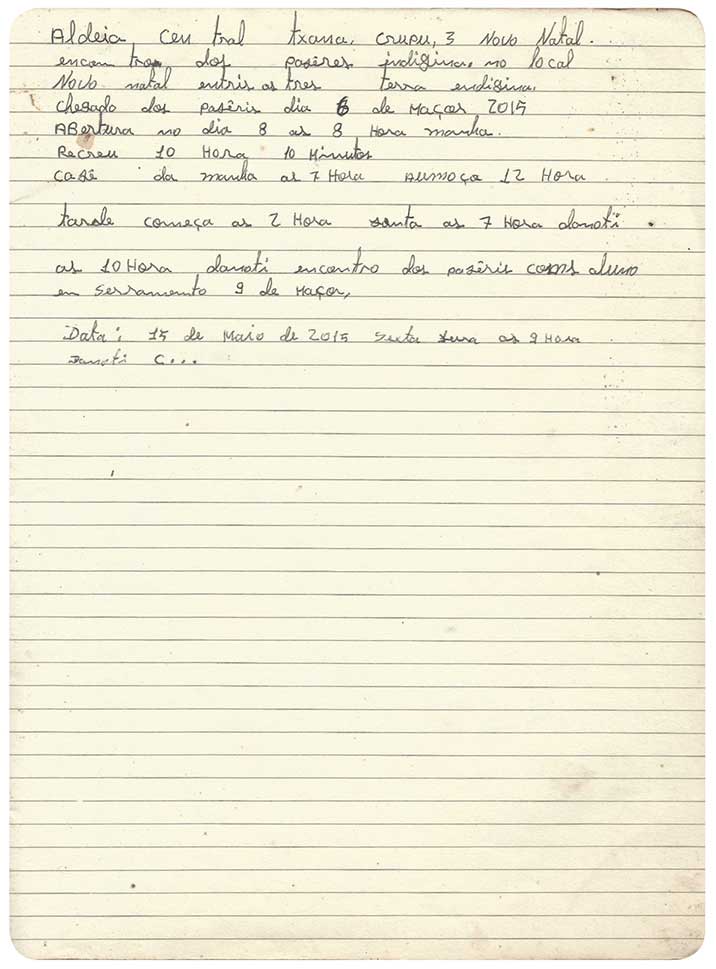 Aldeia Cen tral txana. crupu, 3 Novo Natal.
encom tro dos pasêres indigina. no local
Novo natal entris os tres terra endigina.
chegado dos pasêris dia 6 de maços 2015
ABertura no dia 8 as 8 Hora manha.
Recreu 10 Hora 10 Minutos
casê da manha as 7 Hora aumoça 12 Hora
tarde começa as 2 Hora santa as 7 Hora danoti
as 10 Hora danoti encontro dos pasêris coms aluno
en serramento 9 de maços,
Data: 15 de maio de 2015 sexta as 9 Hora
Danoti C...